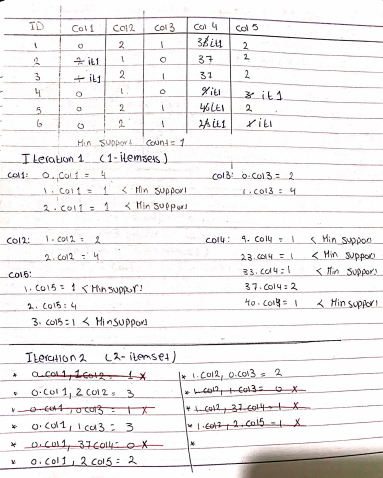 ID Col1 Col2 Col3 Col 4 Col 5
1 0 2 1 it1 2
2 it1 1 0 37 2
3 it1 2 1 37 2
4 0 1 0 it1 it1
5 0 2 1 it1 2
6 0 2 1 it1 it1
Min Support Count = 1
Iteration 1 (1-itemsets)
Col1: 0.Col1 = 4
1.Col1 = 1 < Min Support
2.Col1 = 1 < Min Support
Col3: 0.Col3 = 2
1.Col3 = 4
Col2: 1.Col2 = 2
2.Col2 = 4
Col4: 9.Col4 = 1 < Min Support
23.Col4 = 1 < Min Support
33.Col4 = 1 < Min Support
37.Col4 = 2
40.Col4 = 1 < Min Support
Col5:
1.Col5 = 1 < Min Support
2.Col5 = 4
3.Col5 = 1 < Min Support
Iteration 2 (2-itemset)
* 0.Col1, 1Col2 = 1 X
* 0.Col1, 2Col2 = 3
* 0.Col1, 0Col3 = 1 X
* 0.Col1, 1Col3 = 3
* 0.Col1, 37Col4 = 0 X
* 0.Col1, 2Col5 = 2
* 1.Col2, 0.Col3 = 2
* 1.Col2, 1.Col3 = 0 X
* 1.Col2, 37.Col4 = 1 X
* 1.Col2, 2.Col5 = 1 X
*